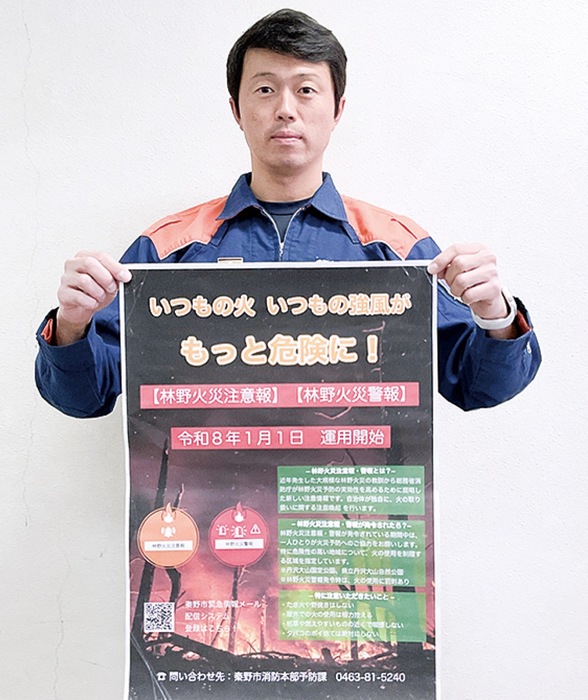 いつもの火 いつもの強風が
もっと危険に！
【林野火災注意報】【林野火災警報】
令和８年１月１日 運用開始
－林野火災注意報・警報とは？－
近年発生した大規模な林野火災の教訓から総務省消
防庁が林野火災予防の実効性を高めるために創設し
た新しい注意情報です。自治体が独自に、火の取り
扱いに関する注意喚起 を行います。
－林野火災注意報・警報が発令されたら？－
林野火災注意報・警報が発令されている期間中は、
一人ひとりが火災予防へのご協力をお願いします。
特に危険性の高い地域について、火の使用を制限す
る区域を指定しています。
※丹沢大山国定公園、県立丹沢大山自然公園
※林野火災警報発令時は、火の使用に罰則あり
－特に注意いただきたいこと－
・たき火や野焼きはしない
・屋外での火の使用は極力控える
・枯草や燃えやすいものの近くで喫煙しない
・タバコのポイ捨ては絶対にしない
林野火災注意報
林野火災警報
秦野市緊急情報メール
配信システム
登録はこちら！
☎ 問い合わせ先：秦野市消防本部予防課 0463-81-5240